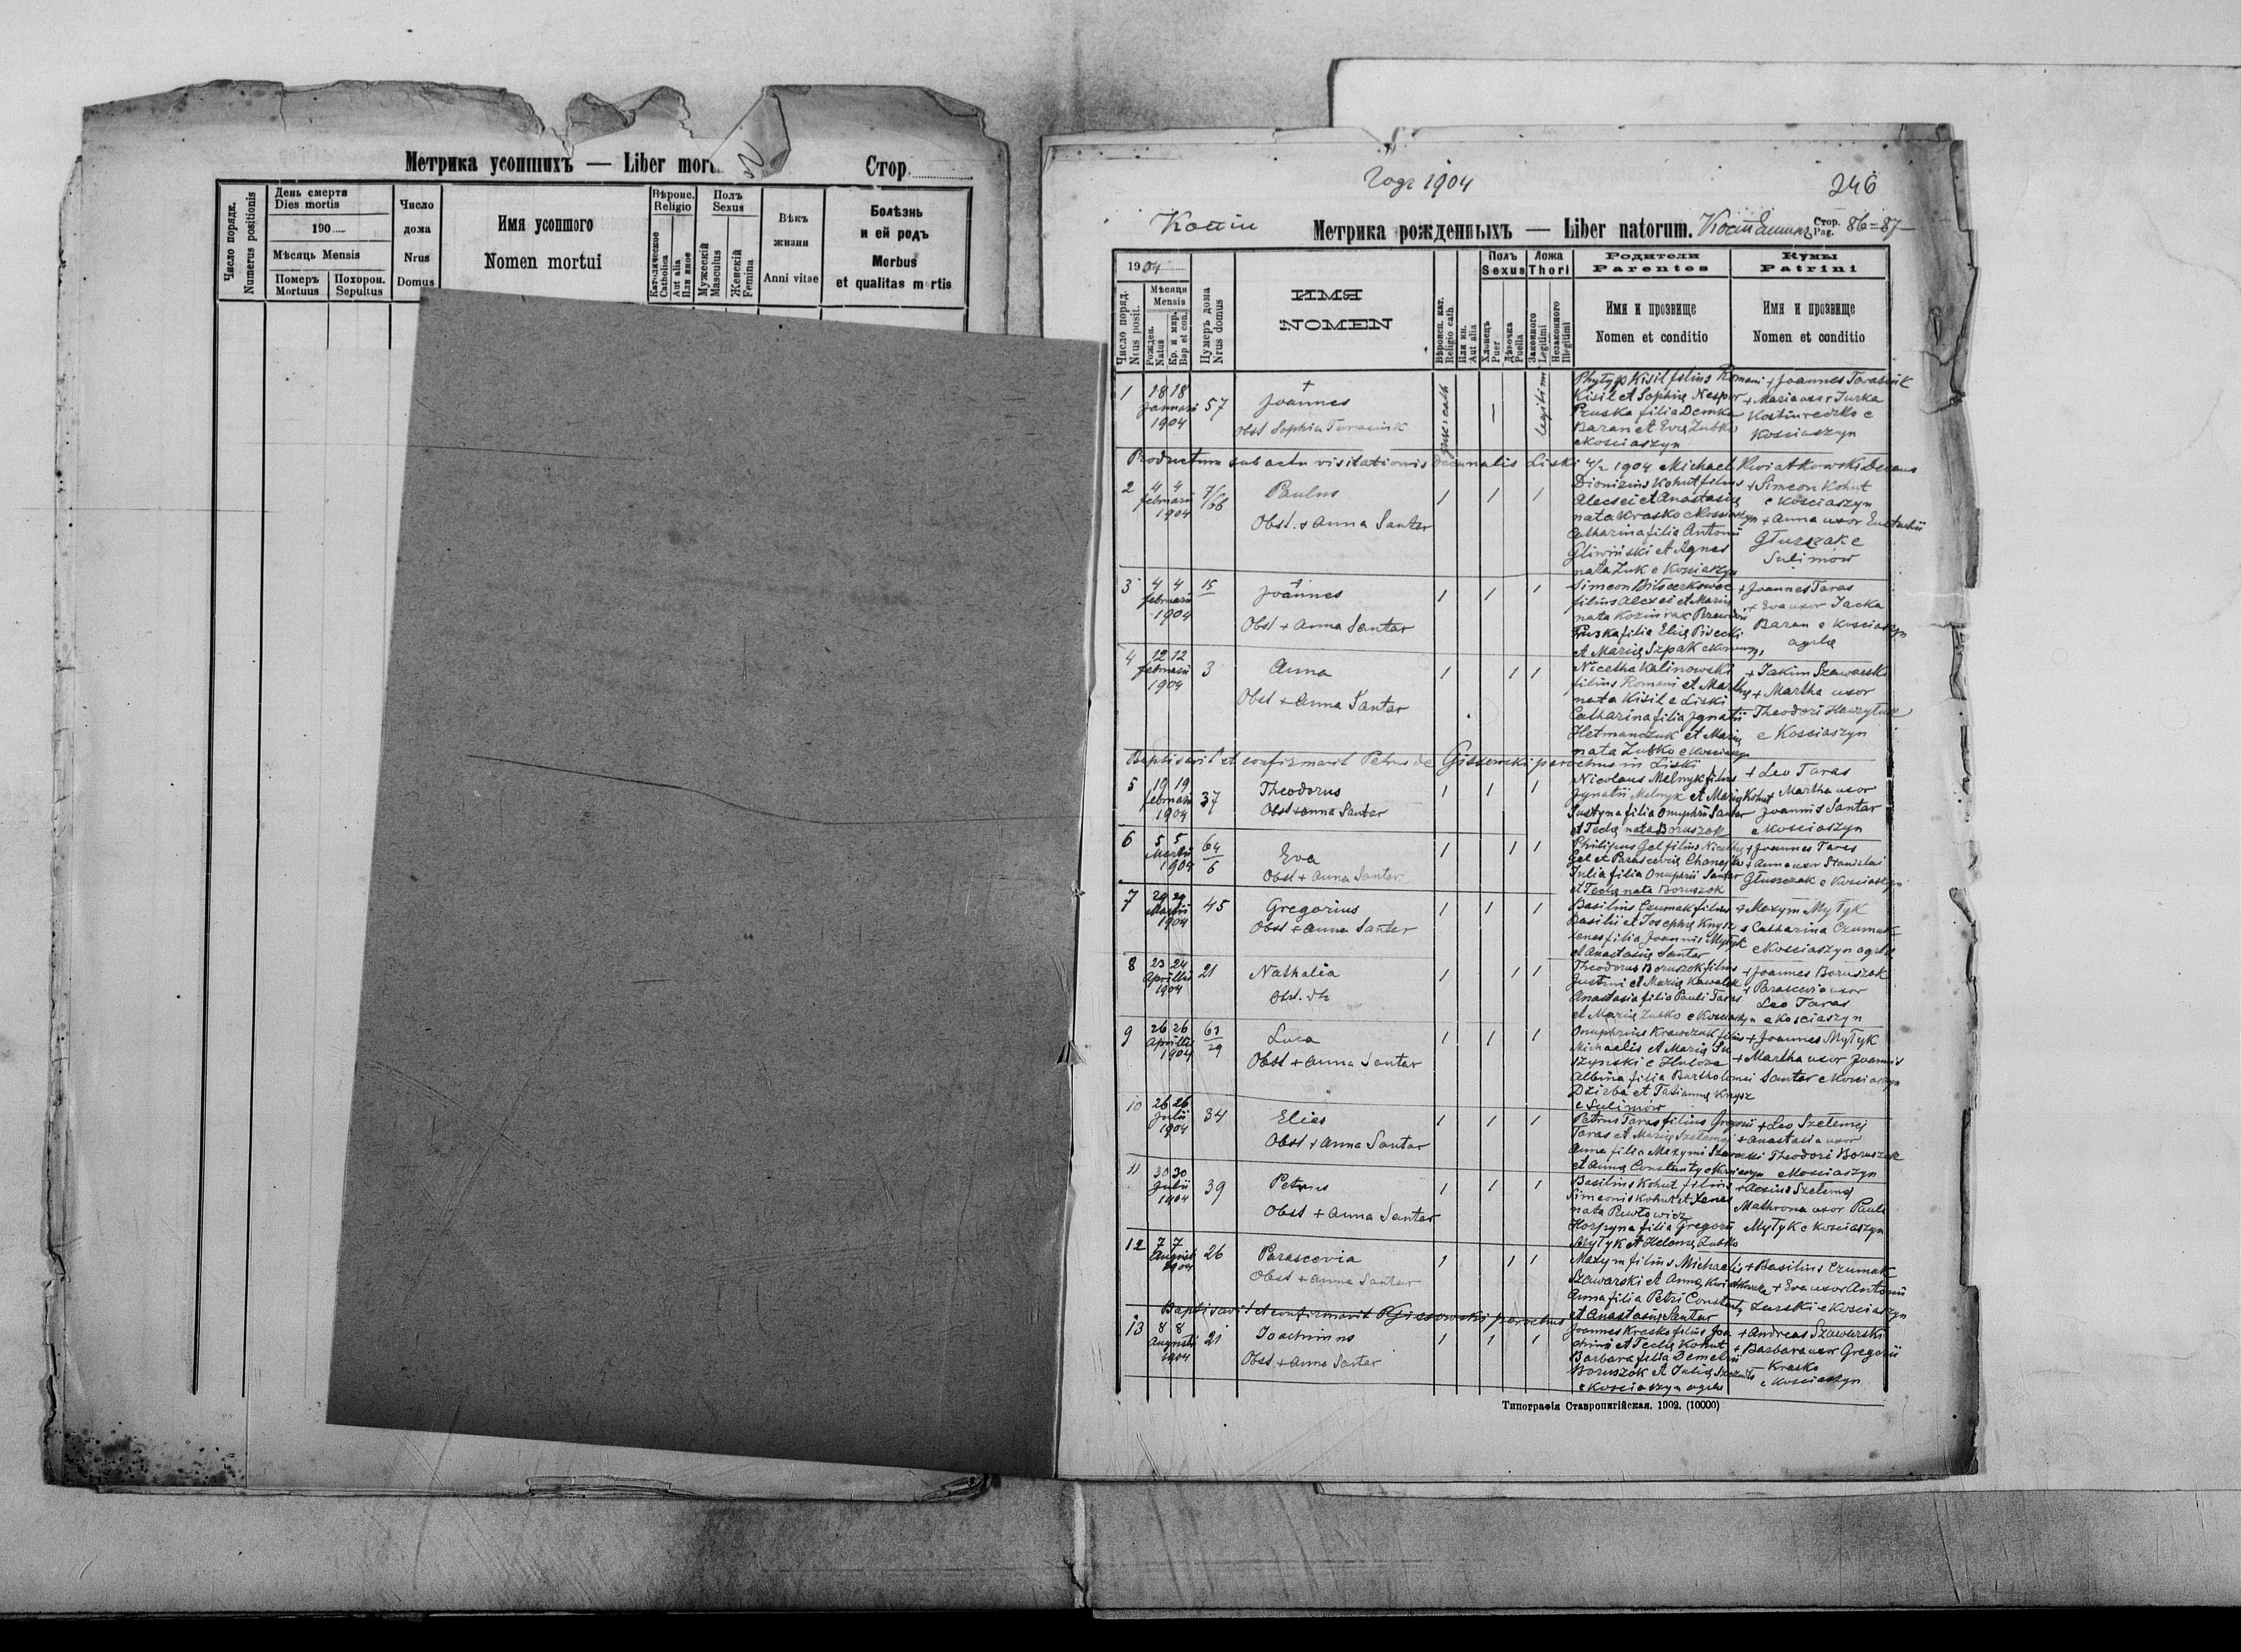 Метрика усопшихъ — Liber mort
Стор.
Число порядк.
Numerus positionis
День смерти
Dies mortis
190
Мѣсяць Mensis
Померъ
Mortuus
Похорон.
Sepultus
Число
дома
Nrus
Domus
Имя усопшого
Nomen mortui
Вѣроис.
Religio
Католическое
Catholica
Aut alia
Или иное
Полъ
Sexus
Мужескій
Masculus
Женскій
Femina
Вѣкъ
жизни
Anni vitae
Болѣзнь
и ей родъ
Morbus
et qualitas mortis
Годъ 1904
246
Копія
Метрика рожденныхъ — Liber natorum.
Костяшинъ
Стор.
Pag.
86=87
1904
Число поряд.
Nrus posit.
Мѣсяця
Mensis
Рожден.
Natus
Кр. и мир.
Bap et con.
Нумеръ дома
Nrus domus
ИМЯ
NOMEN
Вѣроисп. кат.
Religio cath.
Или ин.
Aut alia
Полъ
Sexus
Хлопецъ
Puer
Дѣвочка
Puella
Ложа
Thori
Законного
Legitimi
Незаконного
Illegitimi
Родители
Parentes
Имя и прозвище
Nomen et conditio
Кумы
Patrini
Имя и прозвище
Nomen et conditio
1
18 18
Januari
1904
57
Joannes
Obst Sophia Tarasiuk
gr. cath
legitimi
Phylyp Kisil filius Romani
Kisil et Sophię Nespor
Pruska filia Demka
Baran et Evę Zubko
e Kosciaszyn
+ Joannes Tarasiuk
+ Maria uxor Jurka
Kostiureczko e
Kosciaszyn
Productum sub actu visitationis decanalis Liski 4/2 1904 Michael Kwiatkowski Decanus
2
4 4
februarii
1904
7/66
Paulus
Obst. + Anna Santar
Dionizius Kohut filius
Alecsei et Anastasię
nata Krasko e Kosciaszyn
Catharina filia Antonii
Gliwiński et Agnes
nata Zuk e Kosciaszyn
+ Simeon Kohut
e Kosciaszyn
+ Anna uxor Eustachii
Głuszczak e
Sulimów
3
4 4
februarii
1904
15
Joannes
Obst + Anna Santar
filius Alexei et Marię
Pruska filia Elię Pisecki
et Marię Szpak
+ Joannes Taras
+ Eva uxor Jacka
Baran e Kosciaszyn
agrlę
4
12 12
februarii
1904
3
Anna
Obst + Anna Santar
Nicetha Kalinowski
filius Romani et Marthę
nata Kisil e Liski
Catharina filia Jgnatii
Hetmanczuk et Marię
nata Zubko e Kosciaszyn
+ Jakim Szawarski
+ Martha uxor
Theodori
e Kosciaszyn
Baptisavit et confirmavit Petrus de Gissowski parochus in Liski
5
19 19
februarii
1904
37
Theodorus
Obst + Anna Santar
Nicolaus Melnyk filius
Jgnatii Melnyk et Marię Kohut
Justyna filia Onuphrii Santar
et Teclę nata Boruszok
+ Leo Taras
+ Martha uxor
Joannis Santar
e Kosciaszyn
6
5 5
Martii
1904
64
6
Eva
Obst + Anna Santar
Philipus Gel filius Nicethę
Gel et Parascevię
Julia filia Onuphrii Santar
et Teclę nata Boruszok
+ Joannes Taras
+ Anna uxor Stanislai
Głuszczak e Kosciaszyn
7
29 29
Martii
1904
45
Gregorius
Obst + Anna Santar
Basilius Czumak filius
Basilii et Josephę Knysz
Xenes filia Joannis Mytyk
et Anastasię Santar
+ Maxym Mytyk
+ Catharina Czumak
e Kosciaszyn agrlę
8
23 24
Aprillis
1904
21
Nathalia
Obst. dto
Theodorus Boruszok filius
Justini et Marię Kawalek
Anastasia filia Pauli Taras
et Marię Zubko e Kosciaszyn
+ Joannes Boruszok
+ Parascevia uxor
Leo Taras
e Kosciaszyn
9
26 26
Aprillis
1904
63
29
Luca
Obst + Anna Santar
Onuphrius Krawczuk filius
Michaelis et Marię Su
szynski e
Albina filia Bartholomei
Dzirba et Tatiannę Knysz
e Sulimów
+ Joannes Mytyk
+ Martha uxor Joannis
Santar e Kosciaszyn
10
26 26
Julii
1904
34
Elias
Obst + Anna Santar
Petrus Taras filius Gregorii
Taras et Marię Szelemej
Anna filia Maxymi Szawarski
et Annę Constanty e Kosciaszyn
+ Leo Szelemej
+ Anastasia uxor
Theodori Boruszok
e Kosciaszyn
11
30 30
Julii
1904
39
Petrus
Obst + Anna Santar
Basilius Kohut filius
Simeonis Kohut et Xenes
nata Pawłowicz
Horpyna filia Gregorii
Mytyk et Helenę Zubko
+ Alexius Szelemej
Mathrona uxor Pauli
Mytyk e Kosciaszyn
12
7 7
Augusti
1904
26
Parascevia
Obst + Anna Santar
Maxym filius Michaelis
Szawarski et Annę Kwiatkowska
Anna filia Petri Constanty
et Anastasię Santar
+ Basilius Czumak
+ Eva uxor Antonii
Zurski e Kosciaszyn
Baptisavit et confirmavit PGissowski parochus
13
8 8
Augusti
1904
21
Joachimus
Obst + Anna Santar
Joannes Krasko filius Joa
chimi et Teclę Kohut
Barbara filia Demetrii
Boruszok et Julię
e Kosciaszyn agrlę
+ Andreas Szawarski
+ Barbara uxor Gregorii
Krasko
e Kosciaszyn
Типографія Ставропигійская. 1902. (10000)